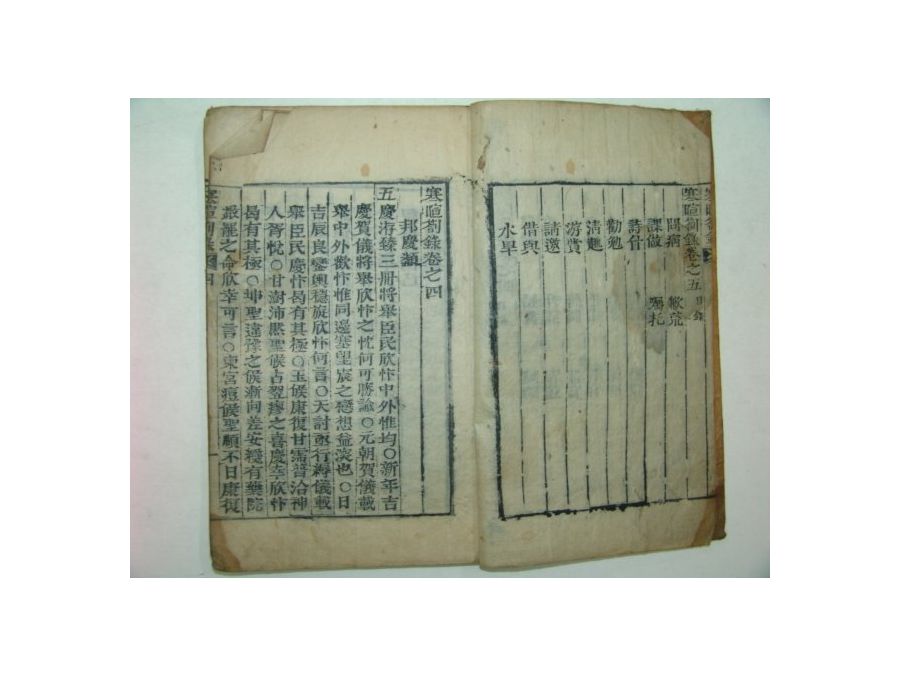 寒暄劄錄卷之五目錄
問病 歉荒
課做 囑托
詩什
勸勉
請邀
借與
水旱
寒暄劄錄卷之四
邦慶類
五慶洊臻三冊將舉臣民欣忭中外惟均〇新年吉
慶賀儀將舉欣忭之忱何可勝諭〇元朝賀儀載
舉中外歡忭惟同邊塞望宸之戀想益深也〇日
吉辰良鑾輿穩旋欣忭何言〇天討亟行縟儀載
舉臣民慶忭曷有其極〇玉候康復甘霈普洽神
人胥悅〇甘澍沛然聖候占翌瘳之喜慶幸欣忭
曷有其極〇坤聖違豫之候漸向差安纔有藥院
之命欣幸可言〇東宮痘候聖顧不日康復